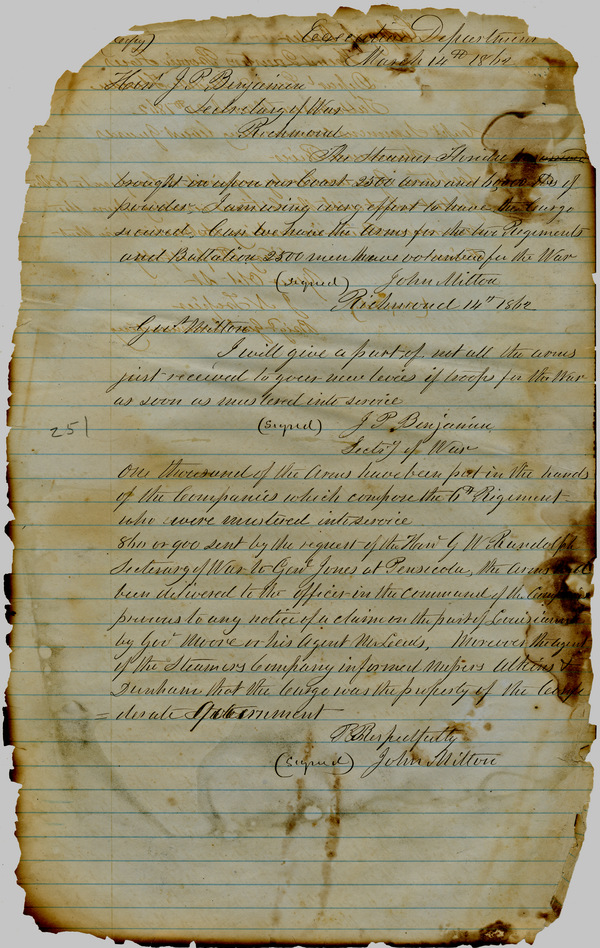 (Copy) Executive Department
March 14th 1862
Honl J. P. Benjamin
Secretary of War
Richmond
The Steamer Florida
brought in upon our Coast 2500 arms and lbs of
powder, I am using every effort to have the Cargo
secured, Can we have the Arms for the two Regiments
and Battalion 2500 men have volunteered for the War
(signed) John Milton
Richmond 14th 1862
Govr Milton
I will give a part of not all the arms
just received to your new levies of troops for the War
as soon as mustered into service
(signed) J P Benjamin
Secty of War
251
One thousand of the Arms have been put in the hands
of the Companies which compose the Regiment
who were mustered into service
800 or 900 sent by the request of the Honl G W Randolph
Secretary of War to Genl Jones at Pensicola, the arms
been delivered to the officer in the command of the
previous to any notice of a claim on the part of Louisiana
by Gov Moore or his Agent Mr Leeds, Moreover the agent
of the Steamers Company informed Messrs &
Dunham that the Cargo was the property of the Confe
=derate Government
Respectfully
(signed) John Milton